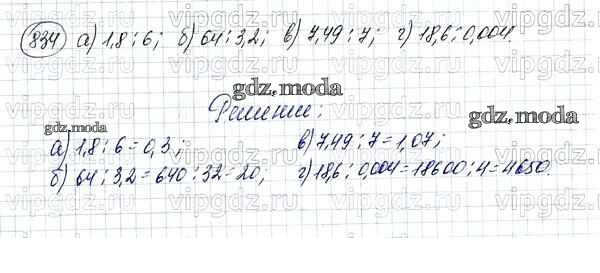 834 а) 1,8 : 6; б) 64 : 3,2; в) 7,49 : 7; г) 18,6 : 0,004.
gdz.moda
Решение:
gdz.moda
gdz.moda
а) 1,8 : 6 = 0,3;
в) 7,49 : 7 = 1,07;
б) 64 : 3,2 = 640 : 32 = 20;
г) 18,6 : 0,004 = 18600 : 4 = 4650.
vipgdz.ru